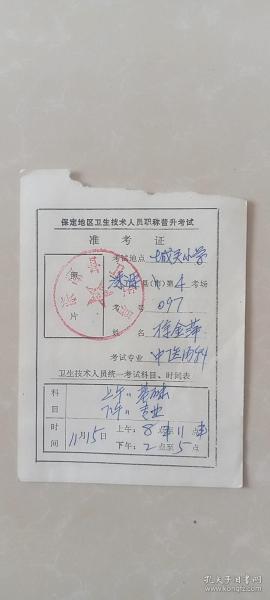 保定地区卫生技术人员职称晋升考试
准考证
照片
考试地点 城关小学
县(市)第4考场
考号 097
姓名 徐金萍
考试专业 中医内科
卫生技术人员统一考试科目、时间表
科目
上午: 基础
下午: 专业
时间
11月15日
上午: 8点至11点
下午: 2点至5点
孔夫子旧书网